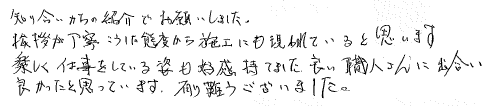 知り合いからの紹介でお願いしました。
挨拶が丁寧 こうした態度から施工にも現われていると思います
楽しく仕事をしている姿も好感持てました 良い職人さんに出合い
良かったと思っています。有難うございました。